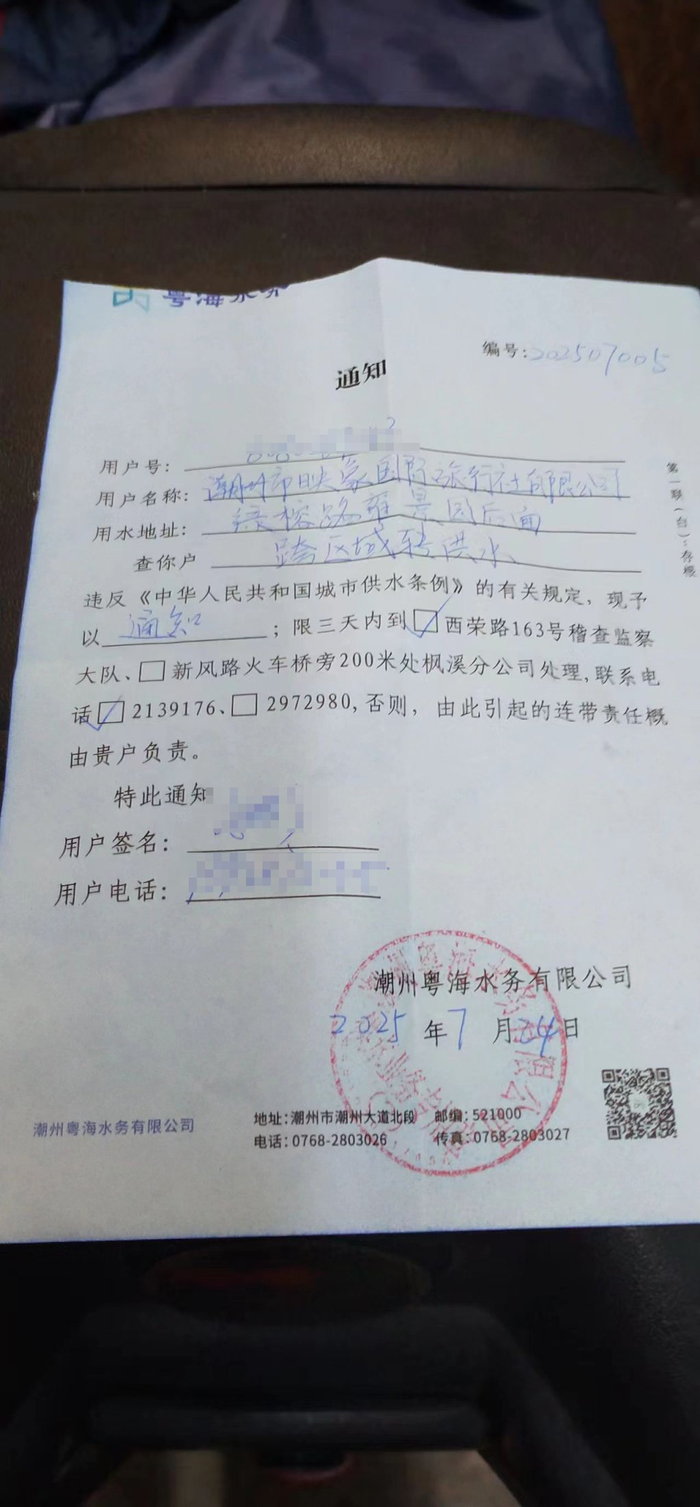 粤海水务
编号:202507005
通知
用户号:
用户名称: 潮州市映豪国际旅行社有限公司
用水地址: 绿榕路雅景园后面
查你户 跨区域转供水
违反《中华人民共和国城市供水条例》的有关规定,现予
以 通知 ;限三天内到☑西荣路163号稽查监察
大队、□新风路火车桥旁200米处枫溪分公司处理,联系电
话☑2139176、□2972980,否则,由此引起的连带责任概
由贵户负责。
特此通知
用户签名:
用户电话:
潮州粤海水务有限公司
2025年7月24日
第一联(白):存根
潮州粤海水务有限公司
地址:潮州市潮州大道北段 邮编:521000
电话:0768-2803026 传真:0768-2803027